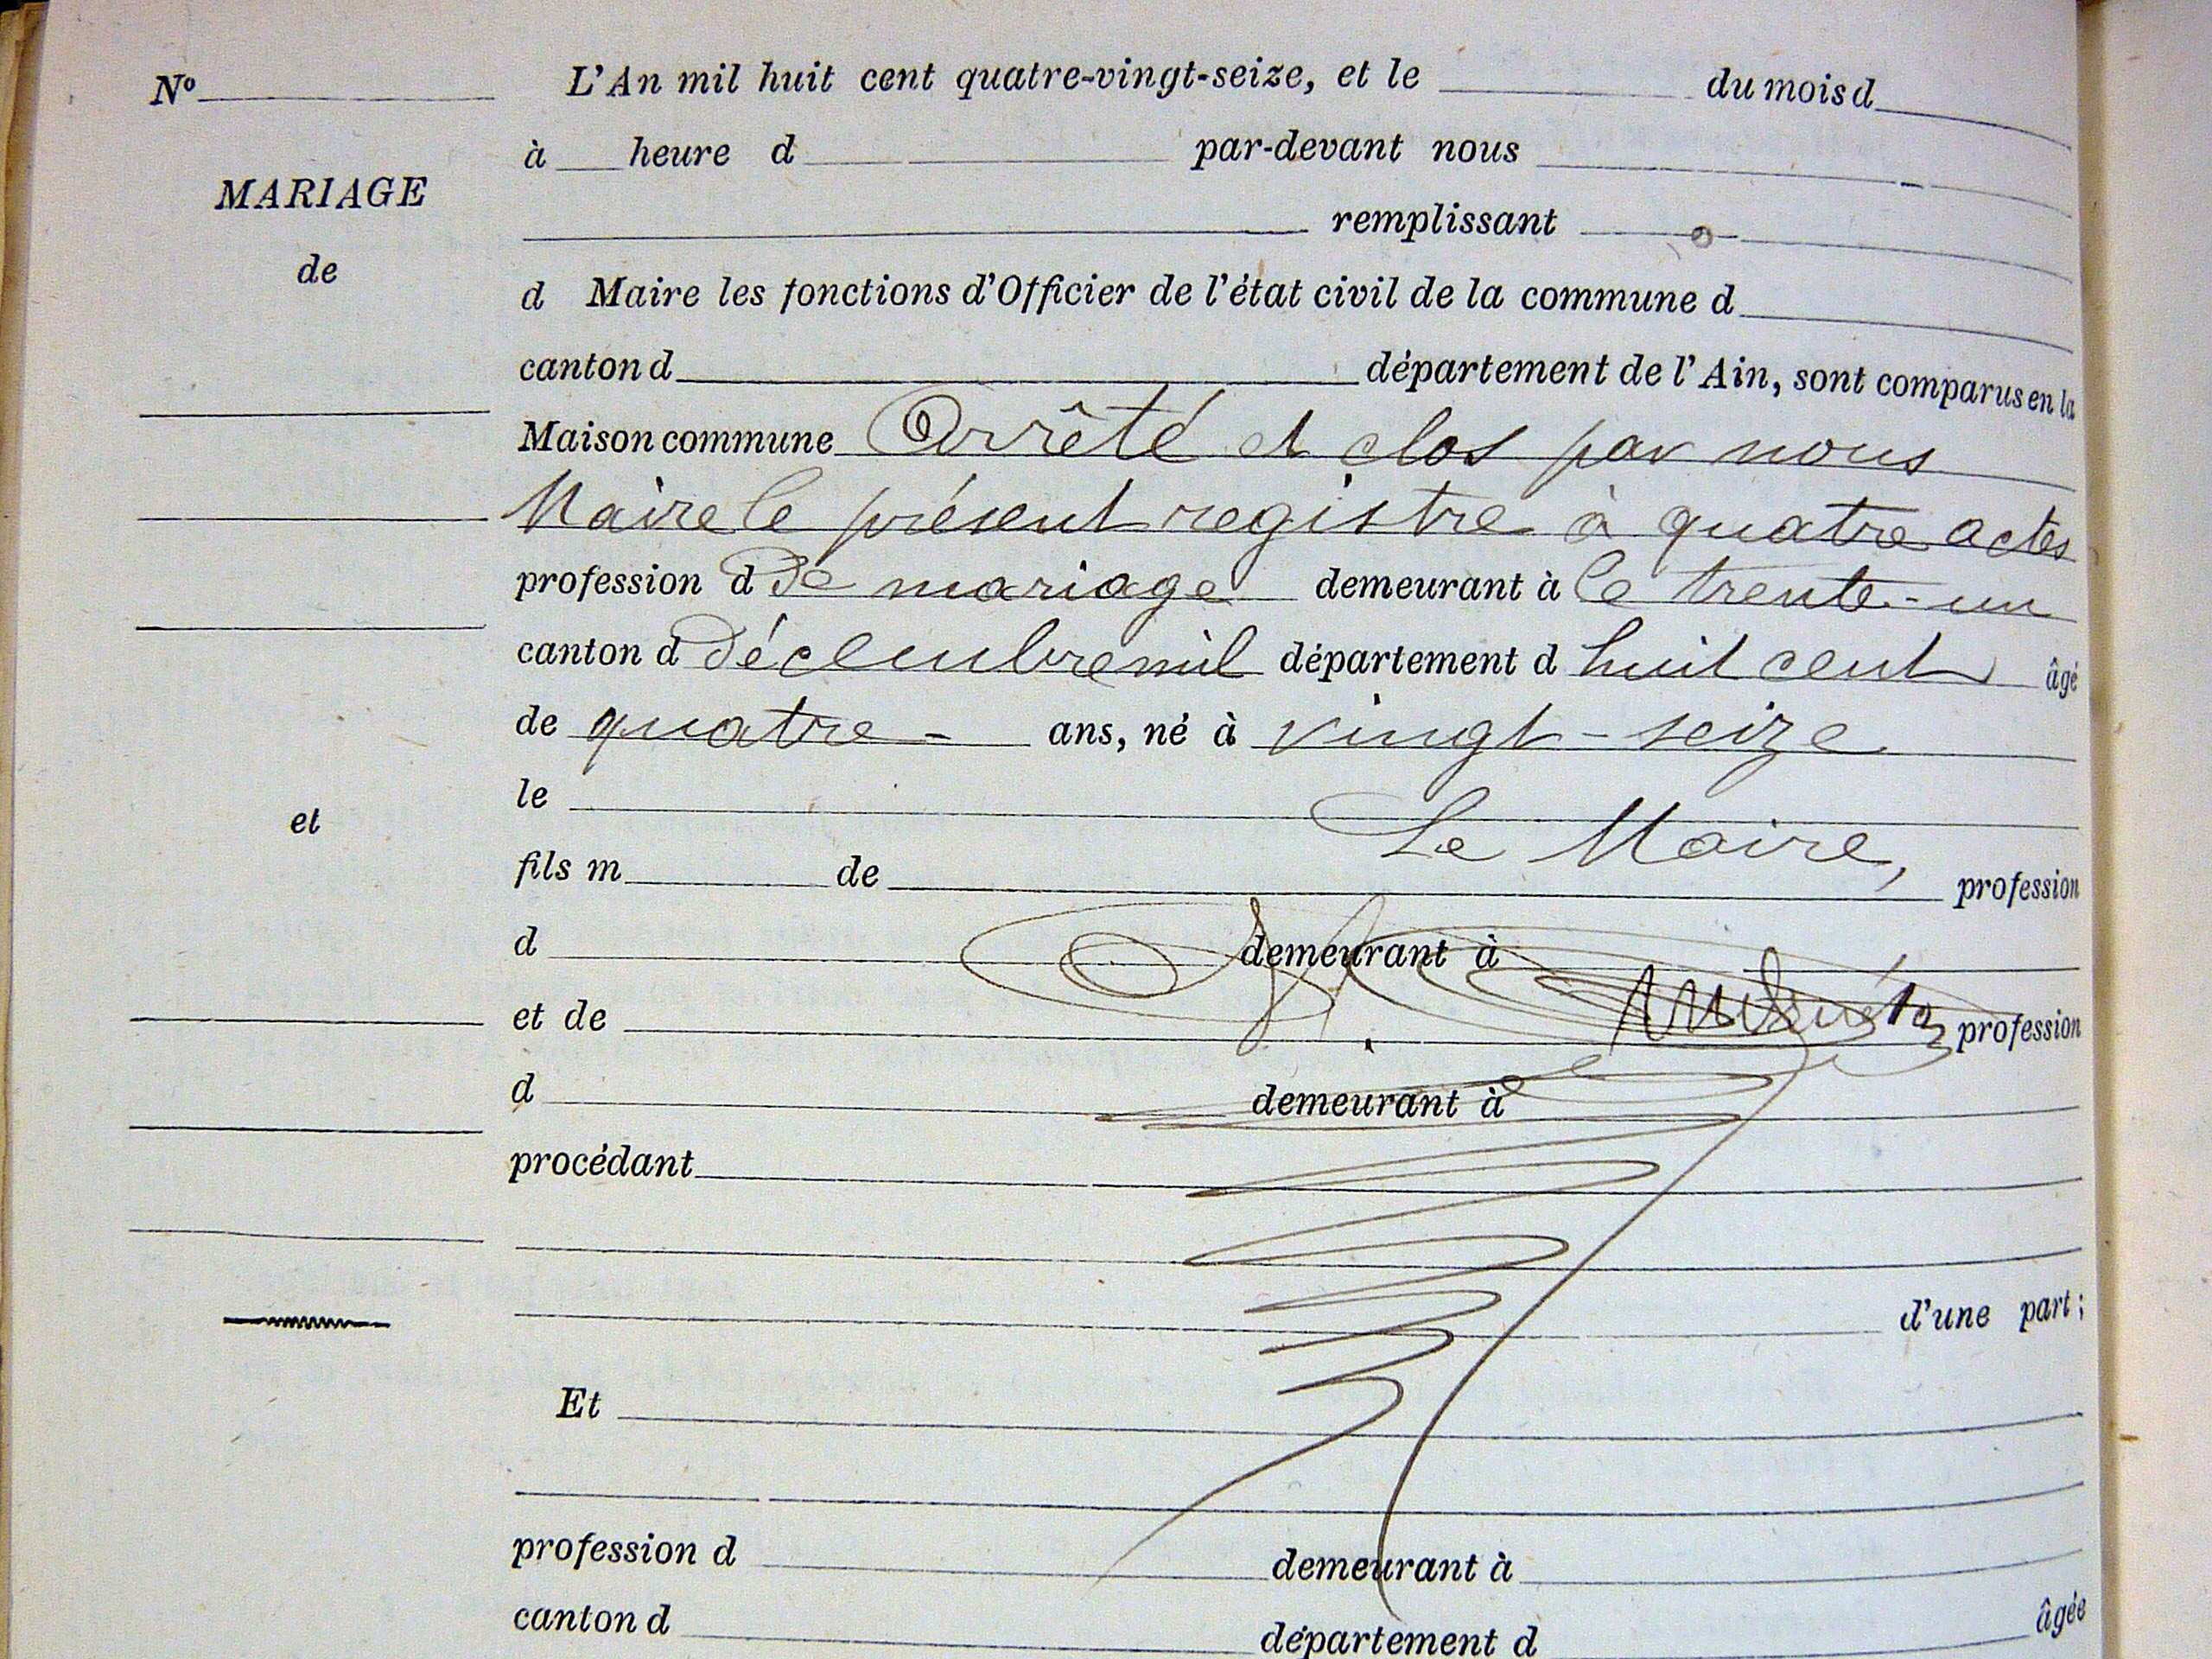 Nº L'An mil huit cent quatre-vingt-seize, et le du mois d
à heure d par-devant nous
MARIAGE
remplissant
de
d Maire les fonctions d'Officier de l'état civil de la commune d
canton d département de l'Ain, sont comparus en la
Maison commune Arrêté et clos par nous
Maire le présent registre à quatre actes
profession d de mariage demeurant à le trente-un
canton d décembre mil département d huit cent âgé
de quatre- ans, né à vingt-seize
le
Le Maire,
et
fils m de profession
d demeurant à
et de profession
d demeurant à
procédant
d'une part;
Et
profession d demeurant à
canton d département d âgée